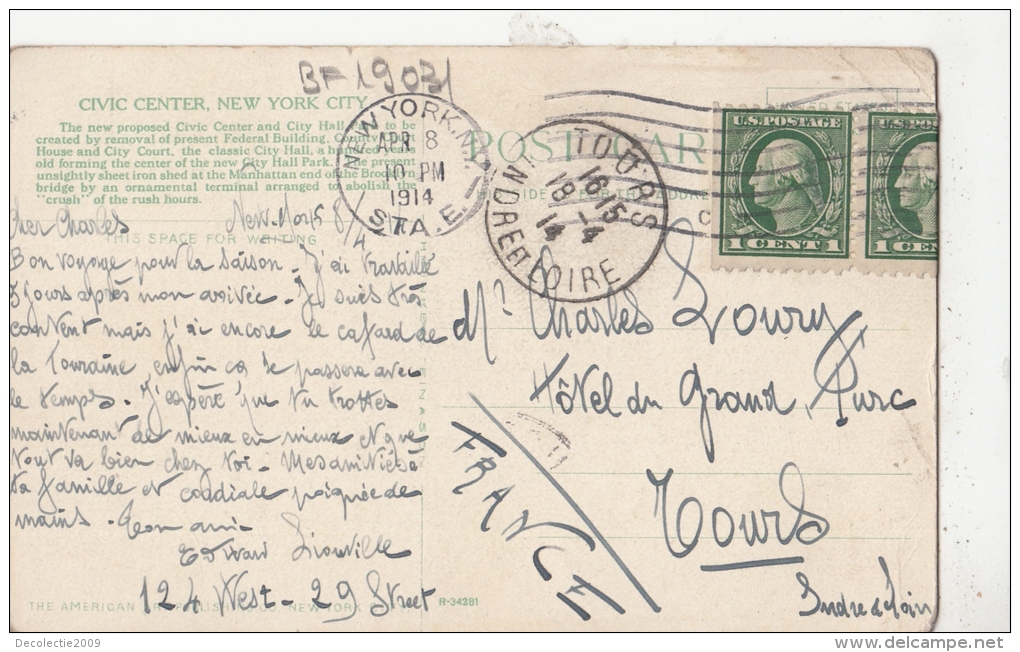 BF-19031
CIVIC CENTER, NEW YORK CITY.
The new proposed Civic Center and City Hall Park, to be
created by removal of present Federal Building, County Court
House and City Court, the classic City Hall, a hundred years
old forming the center of the new City Hall Park. The present
unsightly sheet iron shed at the Manhattan end of the Brooklyn
bridge by an ornamental terminal arranged to abolish the
"crush" of the rush hours.
NEW YORK, N.Y.
APR 8
10 PM
1914
STA. E
POST CARD
TOURS
18 15
18 -4
14
INDRE ET LOIRE
U.S. POSTAGE
1 CENT 1
U.S. POSTAGE
1 CEN
THIS SPACE FOR WRITING
Cher Charles New-York 8/4
Bon voyage pour la saison. J'ai travaillé
3 jours après mon arrivée. Je suis très
content mais j'ai encore le cafard de
la Touraine, enfin ça se passera avec
le temps. J'espère que tu trottes
maintenant de mieux en mieux et que
tout va bien chez toi. Mes amitiés à
ta famille et cordiale poignée de
mains. Ton ami.
Edward Liouville
124 West - 29 Street
Mr. Charles Loury
Hôtel du Grand Turc
Tours
Indre & Loire
FRANCE
THE AMERICAN ART PUBLISHING CO. NEW YORK
R-34281
Decolectie2009
www.delcampe.net